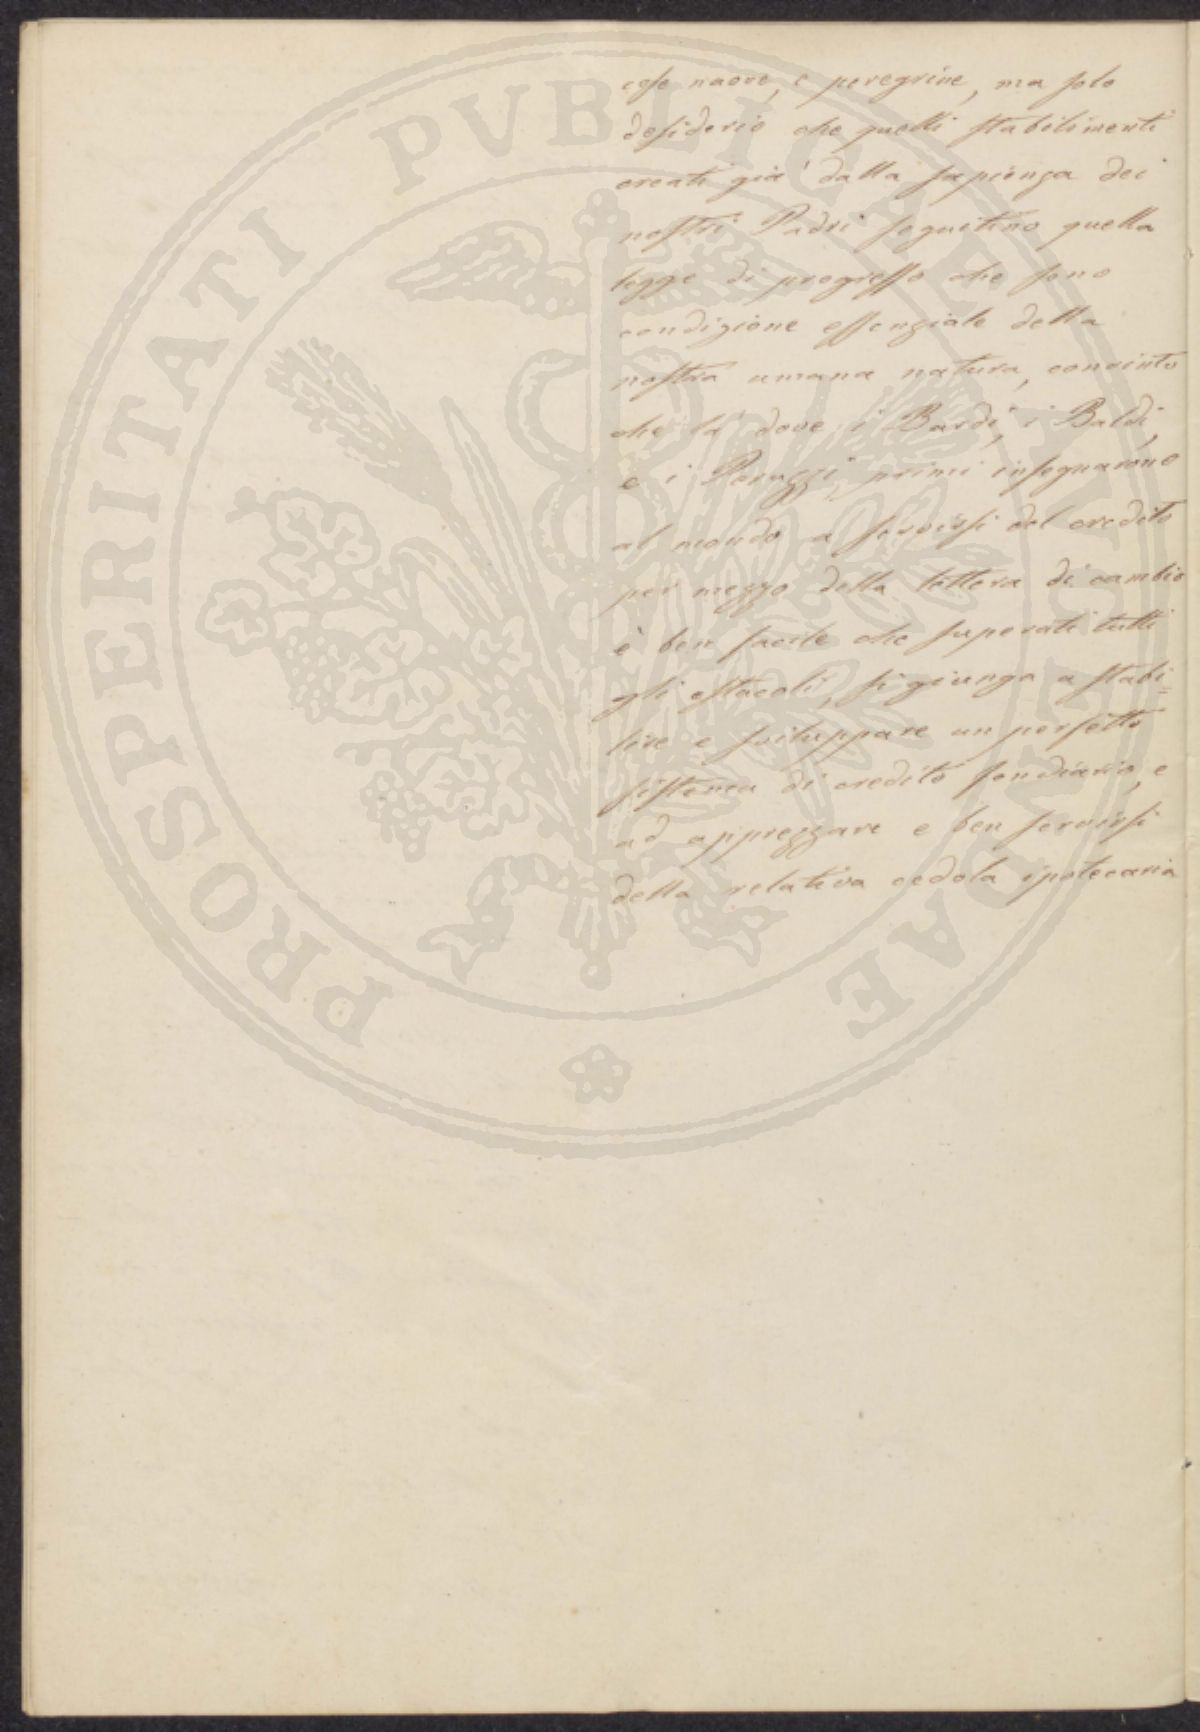 cose nuove, e peregrine, ma solo
desiderio che quelli stabilimenti
creati già dalla sapienza dei
nostri Padri seguitino quella
legge di progresso che sono
condizione essenziale della
nostra umana natura, convinto
che là dove i Bardi, i Baldi,
e i Peruzzi, primi insegnarono
al mondo a servirsi del credito
per mezzo della lettera di cambio
è ben facile che superati tutti
gli ostacoli, si giunga a stabi=
lire e sviluppare un perfetto
sistema di credito fondiario, e
ad apprezzare e ben servirsi
della relativa cedola ipotecaria
PROSPERITATI PVBLICAE AVGENDAE